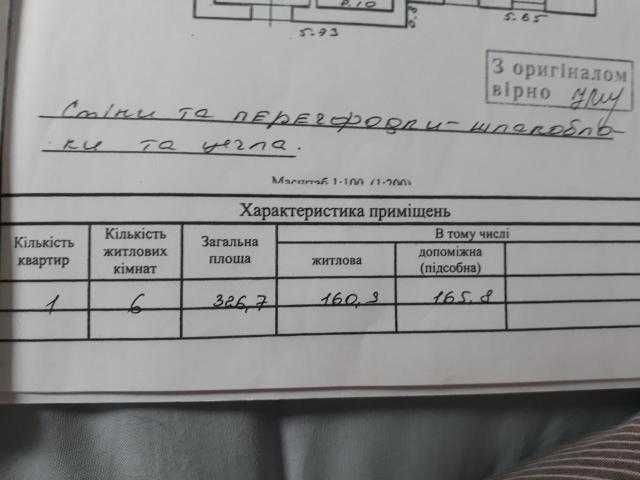 8.10
5.93
5.65
З оригіналом
вірно
Стіни та перегородки - шлакобло-
ки та цегла.
Масштаб 1:100, (1:200)
Характеристика приміщень
Кількість квартир
Кількість житлових кімнат
Загальна площа
В тому числі
житлова
допоміжна (підсобна)
1 6 326,7 160,9 165.8